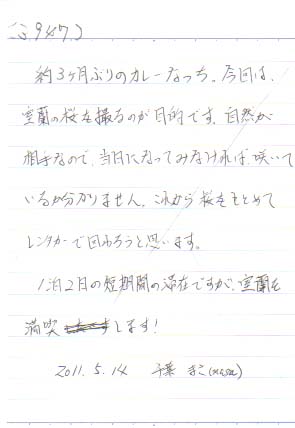 947)
約3ヶ月ぶりのカレーなっち。今回は、
室蘭の桜を撮るのが目的です。自然が
相手なので、当日になってみなければ、咲いて
いるか分かりません。これから桜をもとめて
レンタカーで回ろうと思います。
1泊2日の短期間の滞在ですが、室蘭を
満喫します!
2011.5.14 千葉 まこ